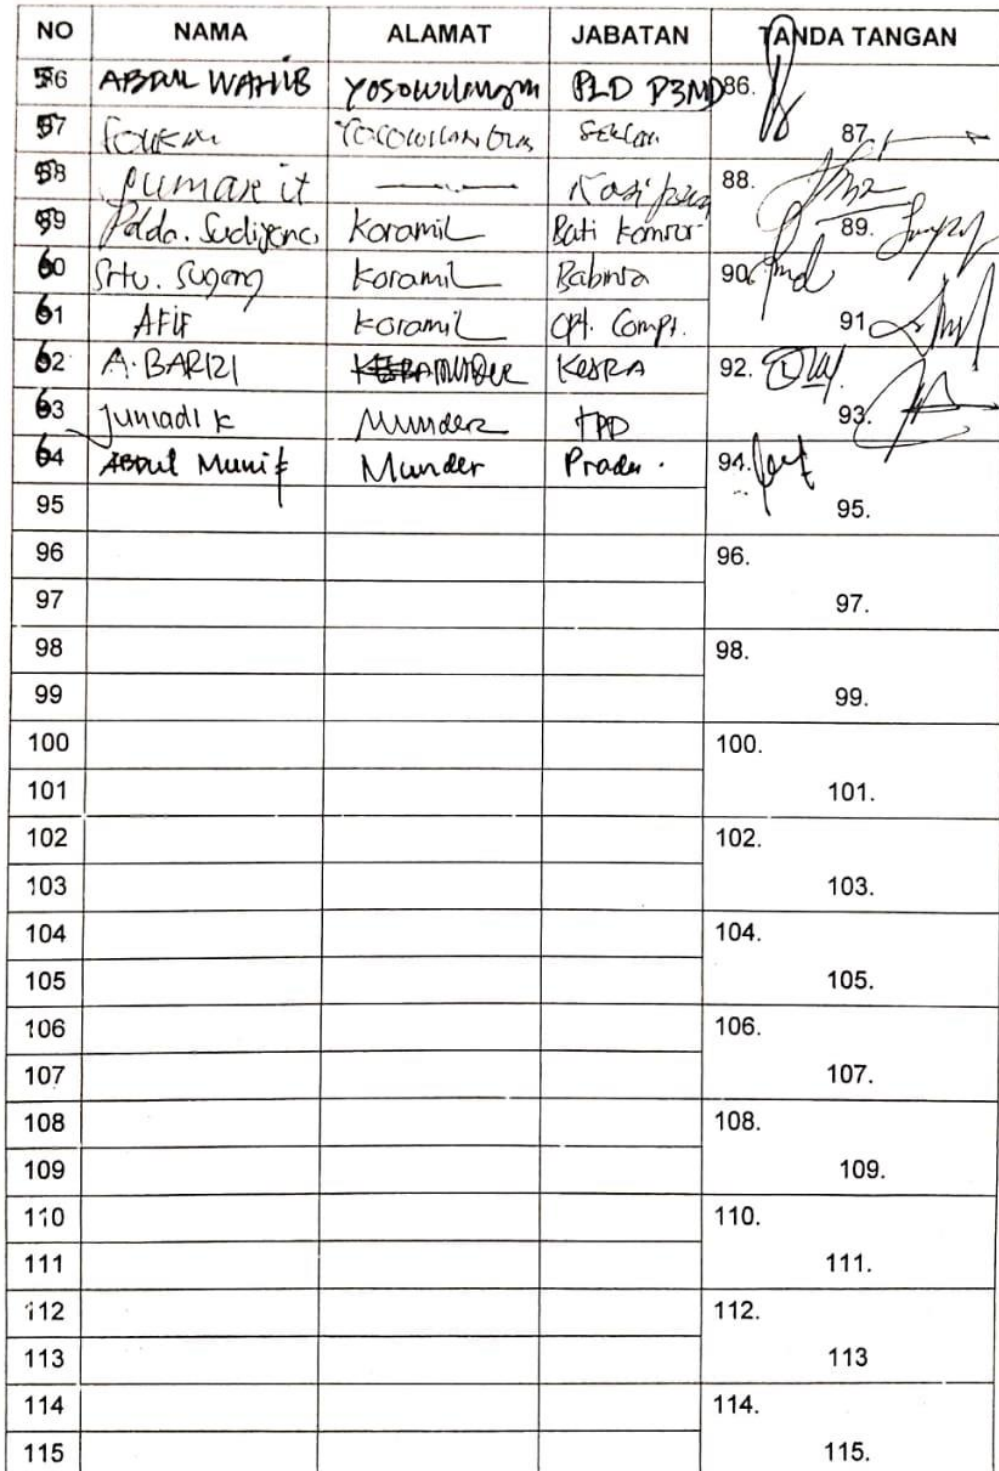 NO NAMA ALAMAT JABATAN TANDA TANGAN
56 ABDUL WAHIB Yosowilangun PLD P3MD 86.
57 87.
58 Jumar it Kasi 88.
59 Pelda. Sudijono Koramil Bati Komsos 89.
60 Srtu. Sugeng Koramil Babinsa 90.
61 AFIF Koramil Opt. Compt. 91
62 A. BARIZI MUNDER KESRA 92.
63 Jumadi K Munder TPD 93.
64 ABDUL Munif Munder Prades. 94.
95 95.
96 96.
97 97.
98 98.
99 99.
100 100.
101 101.
102 102.
103 103.
104 104.
105 105.
106 106.
107 107.
108 108.
109 109.
110 110.
111 111.
112 112.
113 113
114 114.
115 115.